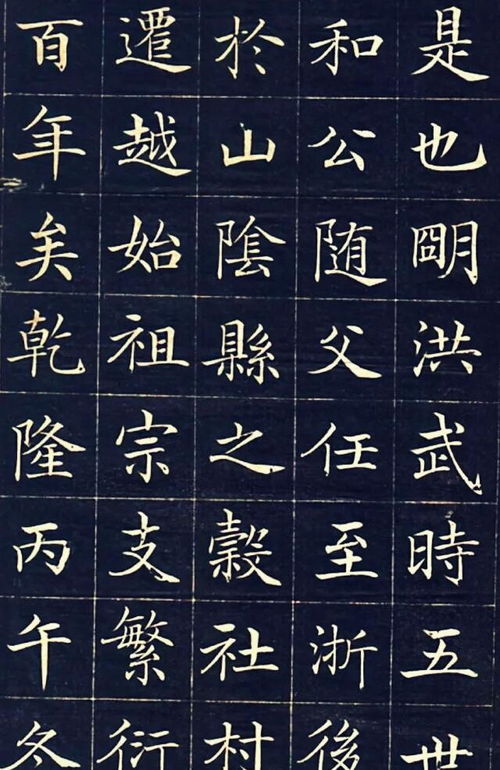 是也明洪武時五世
和公随父任至浙後
於山陰縣之穀社村
遷越始祖宗支繁衍
百年矣乾隆丙午冬